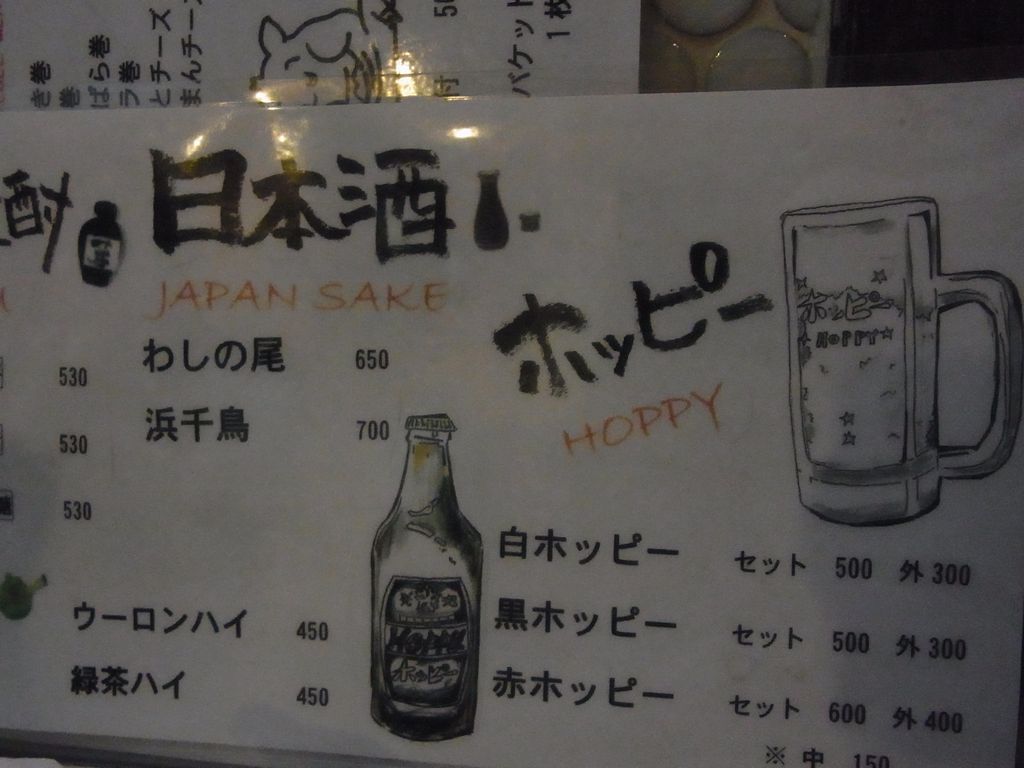 き巻
巻
ぱら巻
ラ巻
とチーズ
まんチーズ
付 50
バケット
1枚
酎
530
530
530
日本酒
JAPAN SAKE
わしの尾 650
浜千鳥 700
ウーロンハイ 450
緑茶ハイ 450
ホッピー
HOPPY
ホッピー
HOPPY
HOPPY
ホッピー
白ホッピー セット 500 外 300
黒ホッピー セット 500 外 300
赤ホッピー セット 600 外 400
※ 中 150